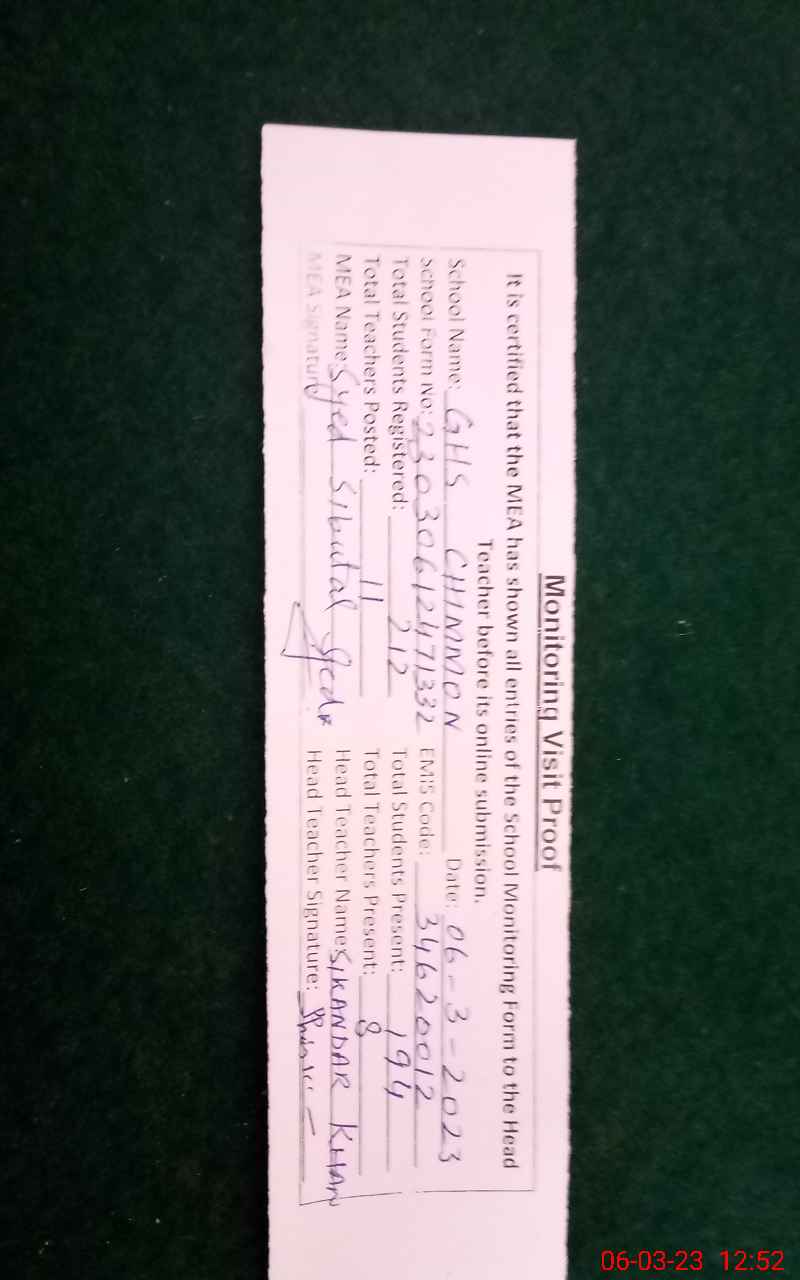 Monitoring Visit Proof
It is certified that the MEA has shown all entries of the School Monitoring Form to the Head
Teacher before its online submission.
School Name: GHS CHIMMON Date: 06-3-2023
School Form No: 23030612471332 EMIS Code: 34620012
Total Students Registered: 212 Total Students Present: 194
Total Teachers Posted: 11 Total Teachers Present: 8
MEA Name: Syed Sibtal Head Teacher Name: SIKANDAR KHAN
MEA Signature Head Teacher Signature:
06-03-23 12:52